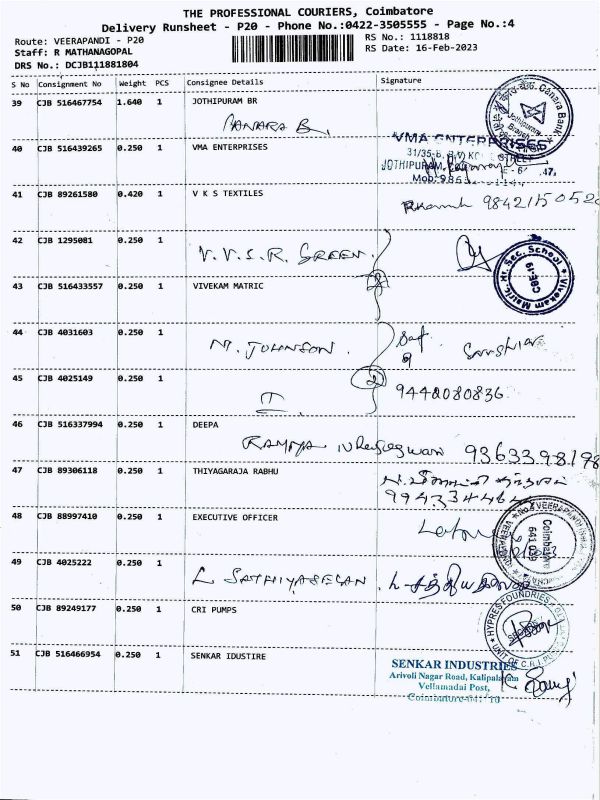 THE PROFESSIONAL COURIERS, Coimbatore
Delivery Runsheet - P20 - Phone No.:0422-3505555 - Page No.:4
Route: VEERAPANDI - P20
Staff: R MATHANAGOPAL
DRS No.: DCJB111881804
RS No.: 1118818
RS Date: 16-Feb-2023
S No Consignment No Weight PCS Consignee Details Signature
39 CJB 516467754 1.640 1 JOTHIPURAM BR
CANARA B.
Canara Bank
Jothipuram Branch
40 CJB 516439265 0.250 1 VMA ENTERPRISES
VMA ENTERPRISES
JOTHIPURAM,
41 CJB 89261580 0.420 1 V K S TEXTILES
42 CJB 1295081 0.250 1 V.V.S.R. GREEN.
43 CJB 516433557 0.250 1 VIVEKAM MATRIC
2
Vivekam Matric. Hr. Sec. School
CBE-19
44 CJB 4031603 0.250 1 M. JOHNSON.
45 CJB 4025149 0.250 1
2
9442080836
46 CJB 516337994 0.250 1 DEEPA
RAMYA 9363398198
47 CJB 89306118 0.250 1 THIYAGARAJA RABHU
48 CJB 88997410 0.250 1 EXECUTIVE OFFICER
Coimbatore
641 019
49 CJB 4025222 0.250 1 L SATHIYASEELAN.
50 CJB 89249177 0.250 1 CRI PUMPS
HYPRES FOUNDRIES
51 CJB 516466954 0.250 1 SENKAR IDUSTIRE
SENKAR INDUSTRIES
Arivoli Nagar Road, Kalipalayam
Vellamadai Post,